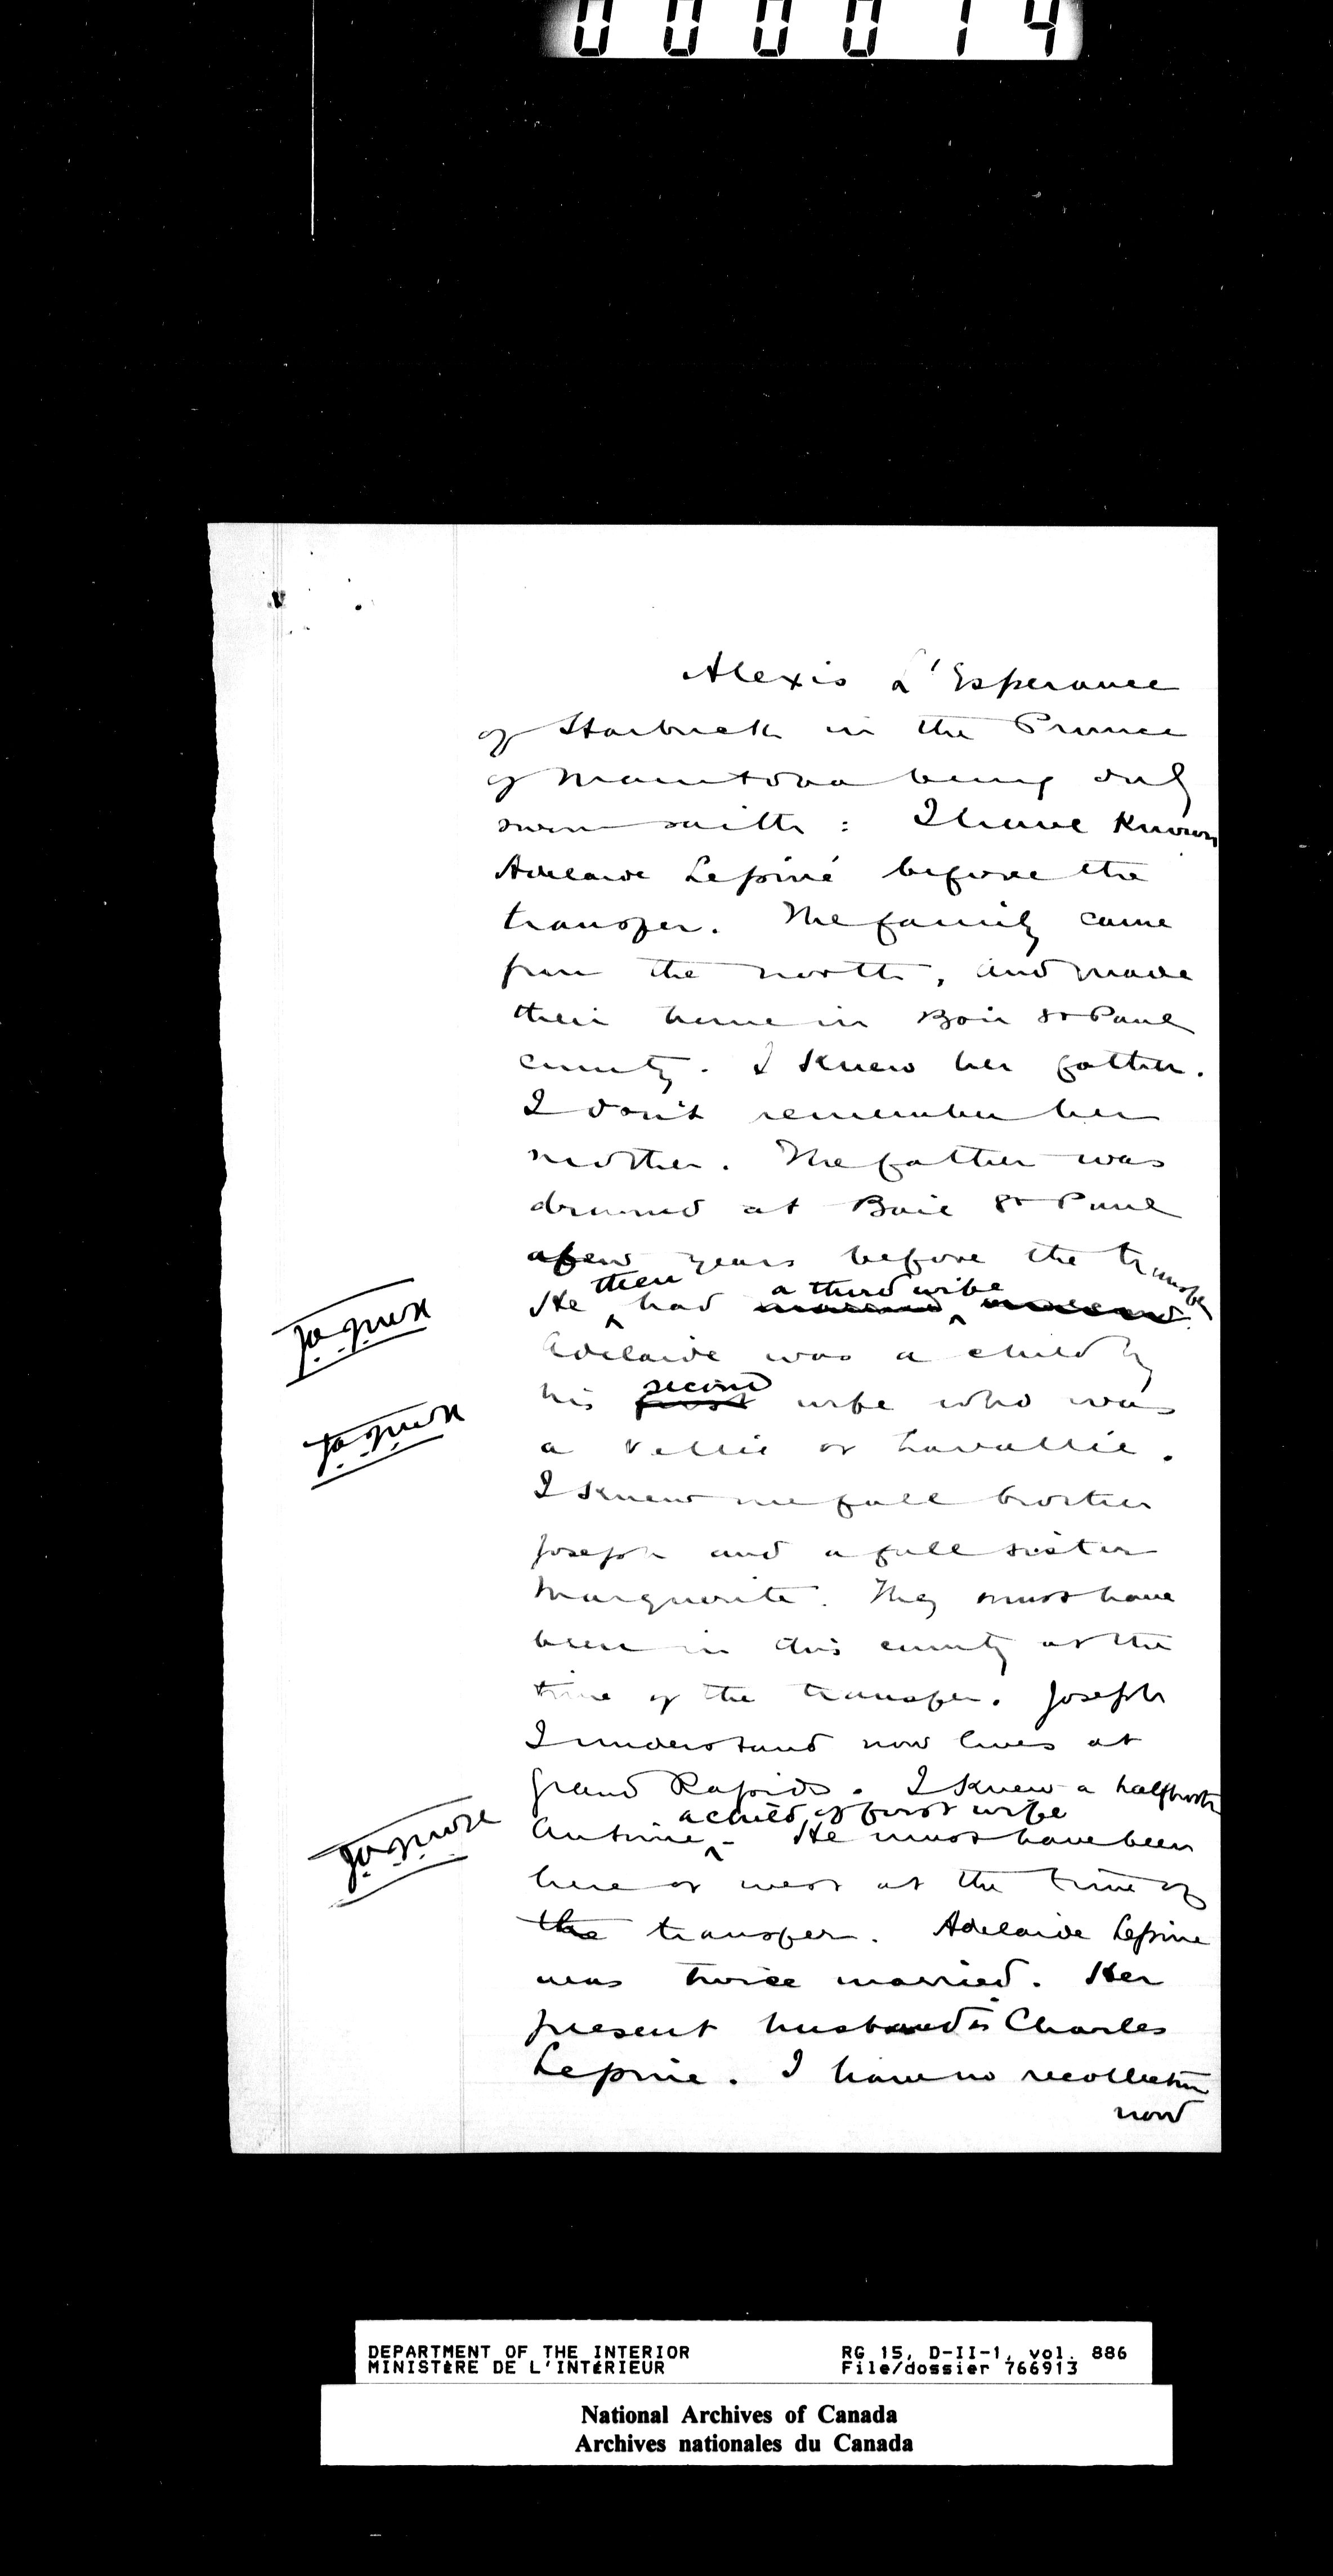 000014
Alexis L'Esperance
of Starbuck in the Province
of Manitoba being duly
sworn saith : I have known
Adelaide Lepiné before the
transfer. The family came
from the north, and made
their home in Baie St Paul
county. I knew her father.
I don't remember her
mother. The father was
drowned at Baie St Paul
a few years before the transfer
then a third wife
He had
Adelaide was a child by
second
his first wife who was
a Vallie or Lavallie.
I knew one full brother
Joseph and a full sister
Marguerite. They must have
been in this county at the
time of the transfer. Joseph
I understand now lives at
Grand Rapids. I knew a half brother
a child of first wife
Antoine - He must have been
here or west at the time of
the transfer. Adelaide Lepine
was twice married. Her
present husband is Charles
Lepine. I have no recollection
now
DEPARTMENT OF THE INTERIOR RG 15, D-II-1, vol. 886
MINISTÈRE DE L'INTÉRIEUR File/dossier 766913
National Archives of Canada
Archives nationales du Canada